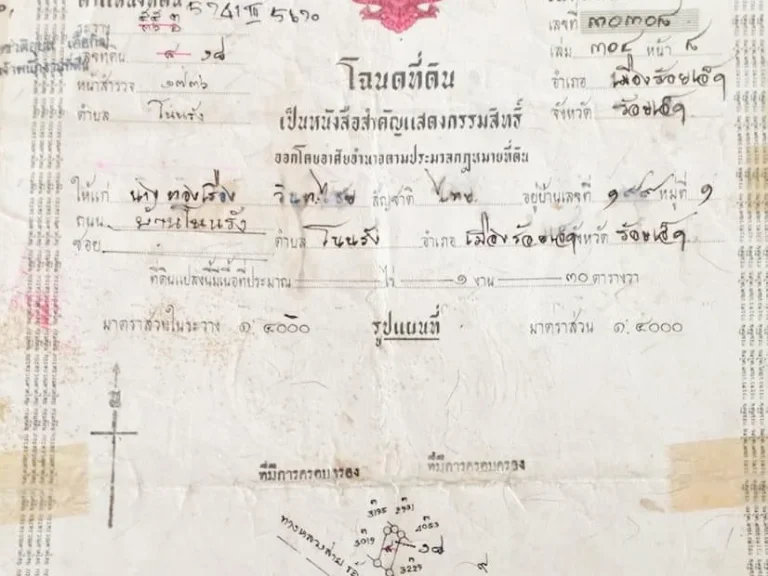 ตำแหน่งที่ดิน 5741 III 5670
ระวาง
เลขที่ ๓๐๓๐๘
เลขที่ดิน ๑๘
เล่ม ๓๐๔ หน้า ๘
หน้าสำรวจ ๑๗๓๖
โฉนดที่ดิน
อำเภอ เมืองร้อยเอ็ด
ตำบล โนนรัง
จังหวัด ร้อยเอ็ด
เป็นหนังสือสำคัญแสดงกรรมสิทธิ์
ออกโดยอาศัยอำนาจตามประมวลกฎหมายที่ดิน
ให้แก่ นาง ทองเรือง สัญชาติ ไทย อยู่บ้านเลขที่ ๑๙๙ หมู่ที่ ๑
ถนน บ้านโนนรัง
ซอย ตำบล โนนรัง อำเภอ เมืองร้อยเอ็ด จังหวัด ร้อยเอ็ด
ที่ดินแปลงนี้มีเนื้อที่ประมาณ ไร่ ๑ งาน ๓๐ ตารางวา
มาตราส่วนในระวาง ๑:๔๐๐๐ รูปแผนที่ มาตราส่วน ๑:๔๐๐๐
ที่มีการครอบครอง ที่มีการครอบครอง
ทางหลวงสาย
๑๘